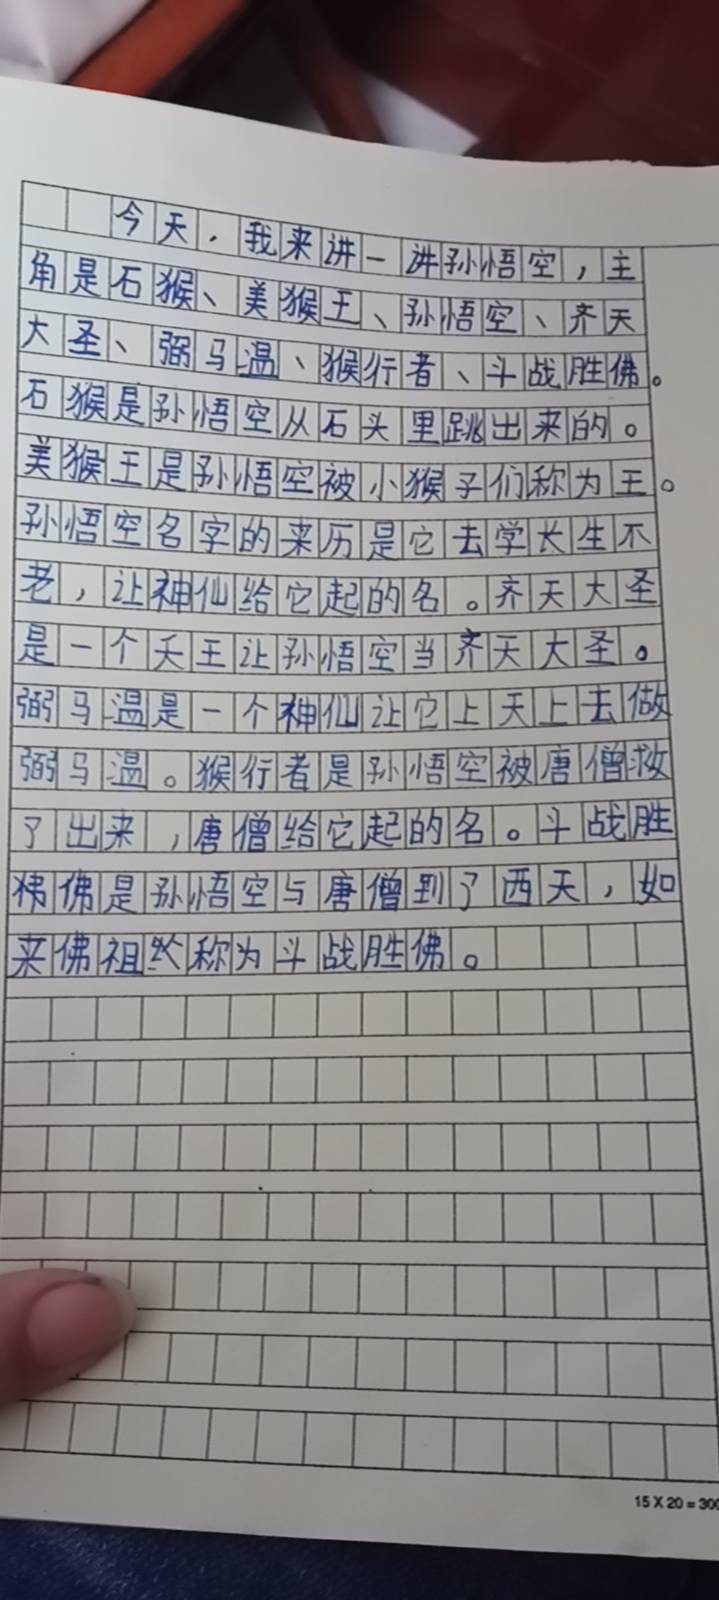 今天，我来讲一讲孙悟空，主
角是石猴、美猴王、孙悟空、齐天
大圣、弼马温、猴行者、斗战胜佛。
石猴是孙悟空从石头里跳出来的。
美猴王是孙悟空被小猴子们称为王。
孙悟空名字的来历是它去学长生不
老，让神仙给它起的名。齐天大圣
是一个天王让孙悟空当齐天大圣。
弼马温是一个神仙让它上天上去做
弼马温。猴行者是孙悟空被唐僧救
了出来，唐僧给它起的名。斗战胜
佛是孙悟空与唐僧到了西天，如
来佛祖称为斗战胜佛。
15 X 20 = 300